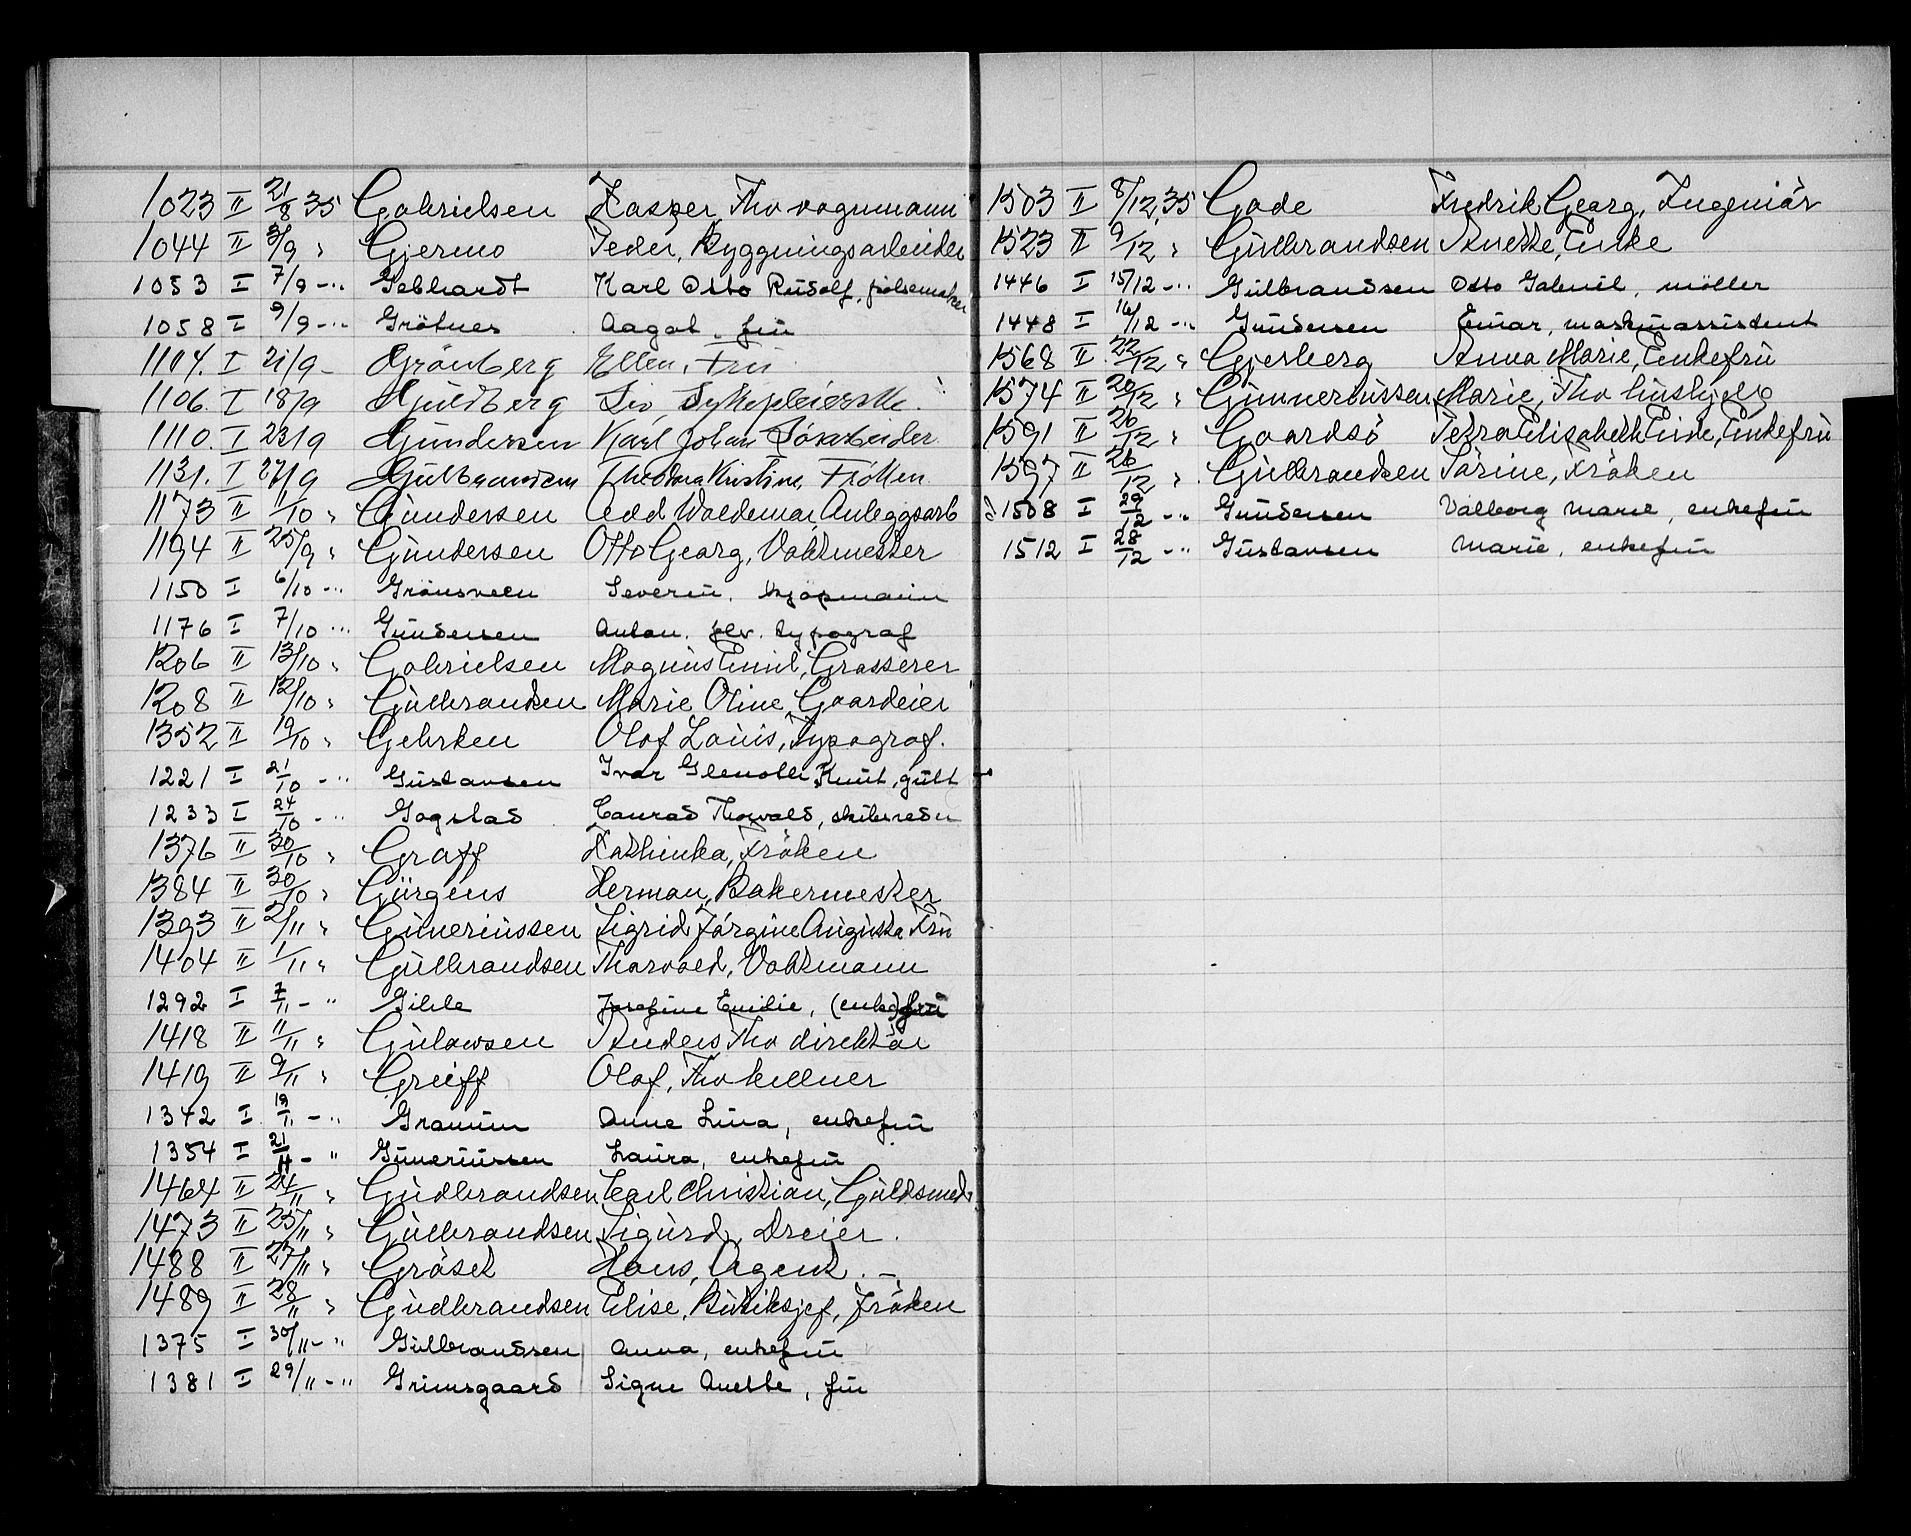 1023 II 21/8 35 Gabrielsen Kasper, Fhv vognmann
1044 II 3/9 " Gjermo Peder, Byggningsarbeider
1053 I 7/9 -" Gebhardt Karl Otto Rudolf, pølsemaker
1058 I 9/9 -" Grötnes Aagot, frü
1104. I 21/9 - Grönberg Ellen, Frü
1106. I 18/9 Güldberg Liv, Sykepleierske.
1110. I 23/9 Gündersen Karl Johan Lösarbeider
1131. I 27/9 Gülbrandsen Theodora Kristine, Fröken
1173 II 1/10 " Gündersen Odd Waldemar, Anleggsarb
1194 II 25/9 " Gündersen Otto Georg, Vaktmester
1150 I 6/10 -" Grönsveen Severin, kjøpmann
1176 I 7/10 -" Gündersen Anton, fhv. typograf
1206 II 13/10 " Gabrielsen Magnus Emil, Grosserer
1208 II 12/10 " Gülbrandsen Marie Oline, Gaardeier
1352 II 19/10 " Gehrken Olaf Louis, Typograf.
1221 I 21/10 -" Güstavsen Ivar Knüt, gütt
1233 I 24/10 -" Gogstad Conrad Thorvald, skibsreder
1376 II 30/10 " Graff Kathinka, Fröken
1384 II 30/10 " Gürgens Herman, Bakermester
1393 II 2/11 " Güneriüssen Sigrid Jörgine Augusta Frü
1404 II 1/11 " Gülbrandsen Thorvald, Vaktmann
1292 I 7/11 -" Gihle Josefine Emilie, (enke)frü
1418 II 11/11 " Gülowsen Anders Fhv direktör
1419 II 9/11 " Greiff Olaf, Fhv kellner
1342 I 19/11 -" Granüm Anne Lina, enkefrü
1354 I 21/11 -" Güneriüssen Laura, enkefrü
1464 II 24/11 " Güdbrandsen Carl Christian, Güldsmed
1473 II 25/11 " Gülbrandsen Sigürd, Dreier.
1488 II 27/11 " Gräset Hans, Agent. -
1489 II 28/11 " Güdbrandsen Elise, Bütiksjef, Fröken
1375 I 30/11 -" Gülbrandsen Anna, enkefrü
1381 I 29/11 -" Grimsgaard Signe Anette, frü
1503 II 8/12 35 Gade Fredrik Georg, Ingeniör
1523 II 9/12 " Gülbrandsen Anette, Enke
1446 I 15/12 -" Gülbrandsen Otto Gabriel, möller
1448 I 16/12 -" Gündersen Einar, maskinassistent
1568 II 22/12 " Gjerberg Anna Marie, Enkefrü
1574 II 20/12 " Günneriüssen Marie, Fhv hüshjelp
1591 II 20/12 " Gaardsö Petra Elisabeth Eine, Enkefrü
1597 II 26/12 " Gülbrandsen Sörine, Fröken
1508 I 29/12 -" Gündersen Valborg Marie, enkefrü
1512 I 28/12 -" Güstavsen Marie, enkefrü